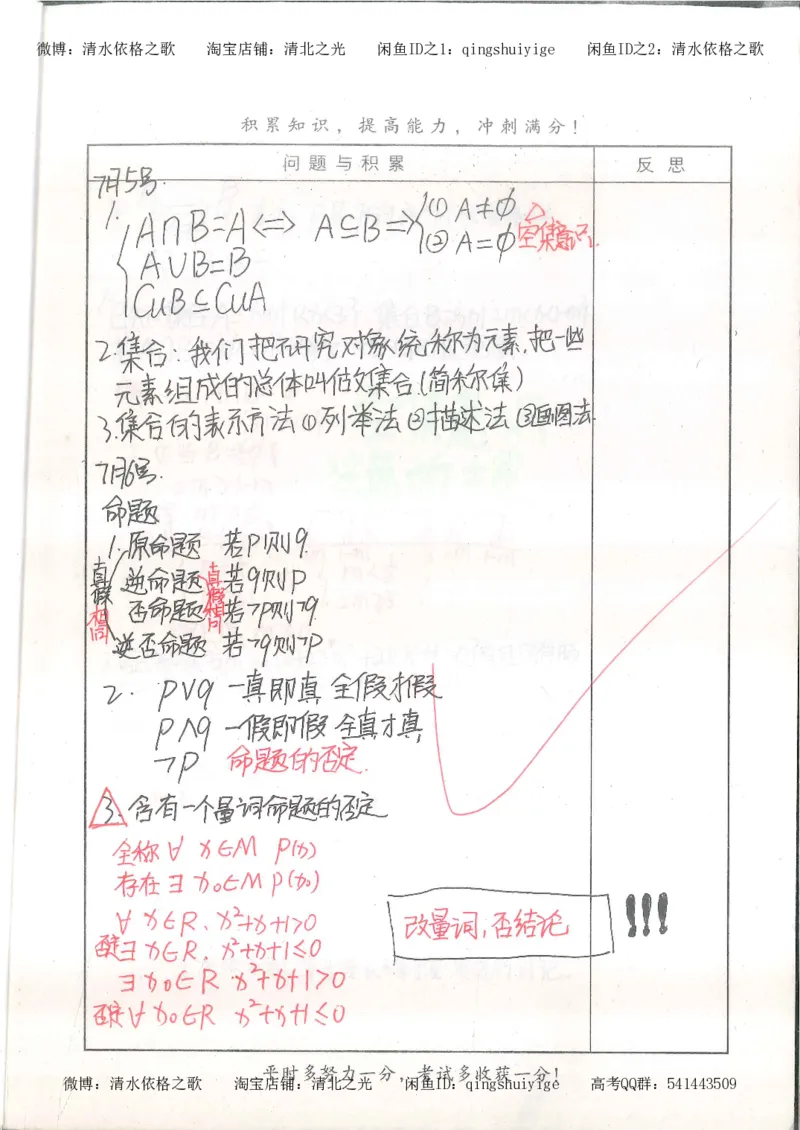 微博：清水依格之歌 淘宝店铺：清北之光 闲鱼ID之1：qingshuiyige 闲鱼ID之2：清水依格之歌
积累知识，提高能力，冲刺满分！
问题与积累 反思
7月5号.
1. A∩B=A⇔ A⊆B⇒ ① A≠∅
② A=∅ △空集意识.
A∪B=B
C∪B⊆C∪A
2.集合：我们把研究对象统称为元素,把一些
元素组成的总体叫做集合.(简称集)
3.集合的表示方法①列举法②描述法③画图法.
7月6号.
命题
1.原命题 若p则q.
逆命题 若q则p
否命题 若¬p则¬q.
逆否命题 若¬q则¬p
真假相同
真假相同
2. p∨q 一真即真 全假才假
p∧q 一假即假 全真才真
¬p 命题的否定.
3.含有一个量词命题的否定
全称∀ x∈M p(x)
存在∃ x₀∈M p(x₀)
∀ x∈R、x²+x+1>0
否定∃ x∈R、x²+x+1≤0
∃x₀∈R x²+x+1>0
否定∀x₀∈R x²+x+1≤0
改量词,否结论 !!!
平时多努力一分，考试多收获一分！
微博：清水依格之歌 淘宝店铺：清北之光 闲鱼ID：qingshuiyige 高考QQ群：541443509